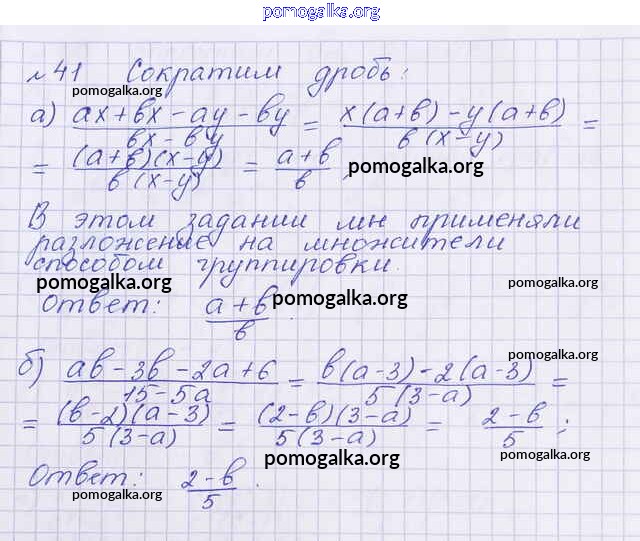 pomogalka.org
№41 Сократим дробь:
pomogalka.org
а) (ax + bx - ay - by)/(bx - by) = (x(a+b) - y(a+b))/(b(x-y)) =
= ((a+b)(x-y))/(b(x-y)) = (a+b)/b
pomogalka.org
pomogalka.org
pomogalka.org
В этом задании мы применяли
разложение на множители
способом группировки.
pomogalka.org pomogalka.org
Ответ: (a+b)/b.
pomogalka.org
б) (ab - 3b - 2a + 6)/(15 - 5a) = (b(a-3) - 2(a-3))/(5(3-a)) =
pomogalka.org
= ((b-2)(a-3))/(5(3-a)) = ((2-b)(3-a))/(5(3-a)) = (2-b)/5;
pomogalka.org
pomogalka.org
Ответ: (2-b)/5.
pomogalka.org
pomogalka.org